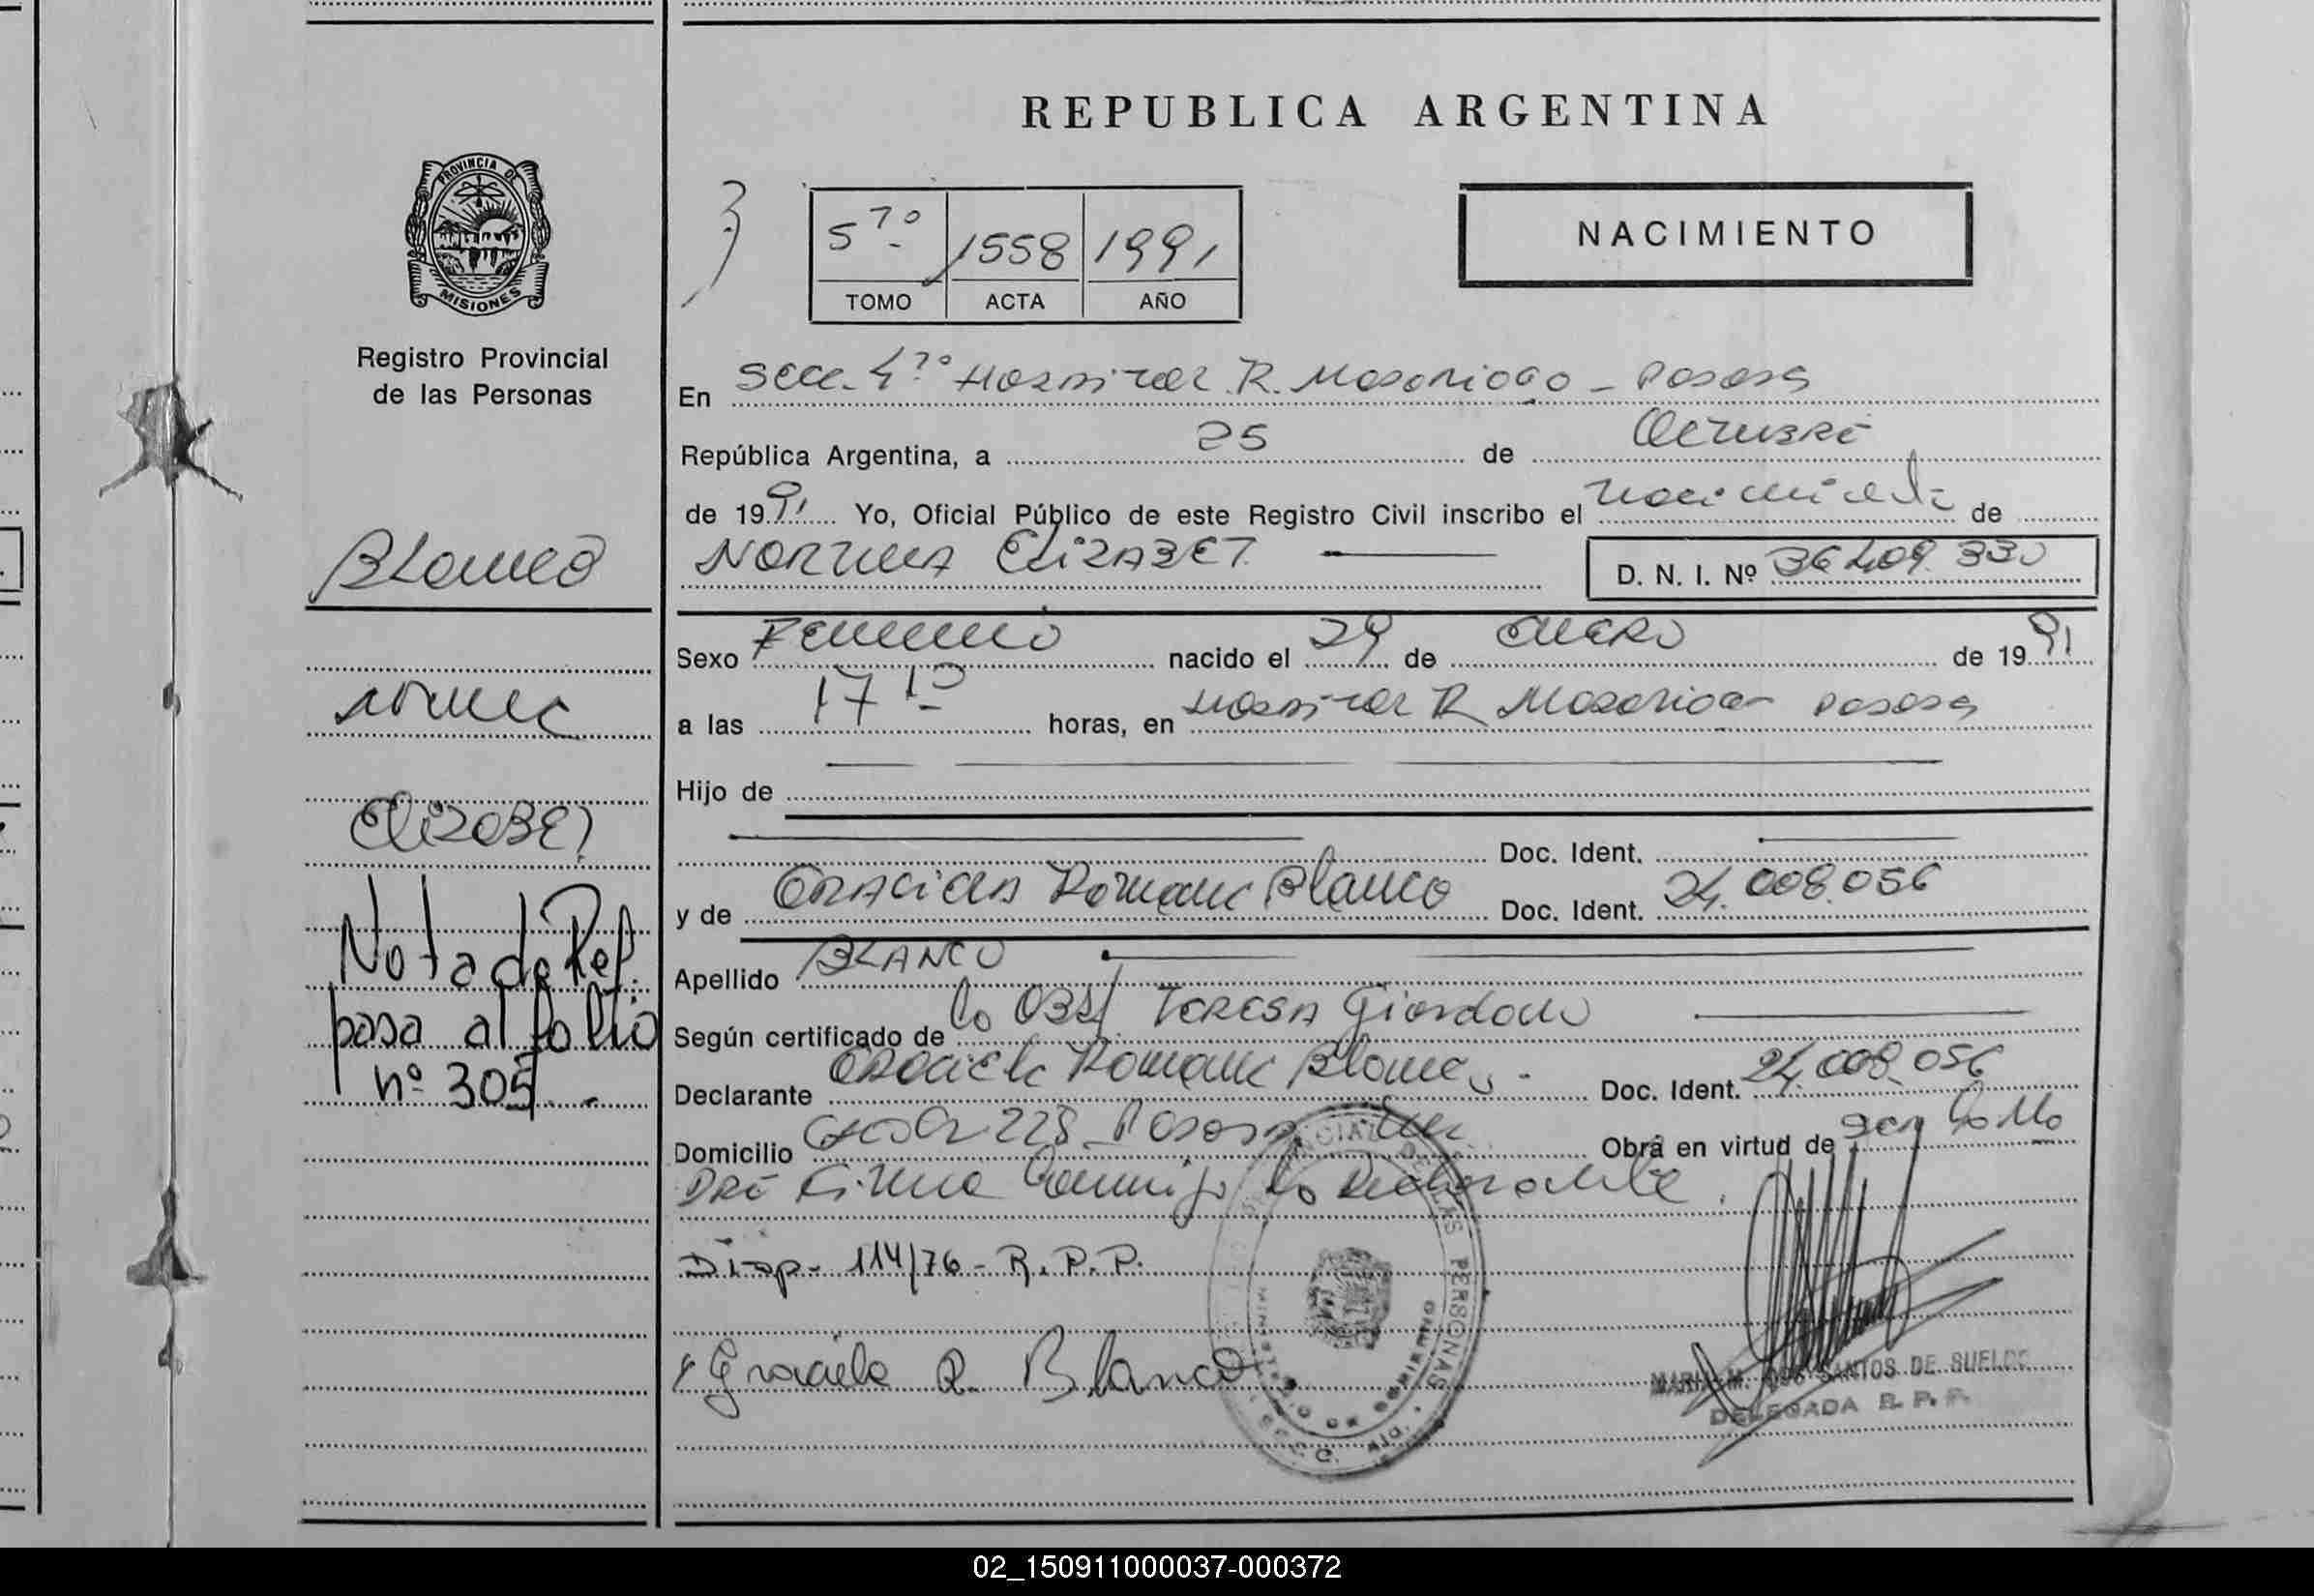 REPUBLICA ARGENTINA
PROVINCIA DE
MISIONES
Registro Provincial
de las Personas
5º 1558 1991
TOMO ACTA AÑO
NACIMIENTO
En Secc. 4ª Hospital R. Madariaga - Posadas
República Argentina, a 25 de Octubre
de 1991 Yo, Oficial Público de este Registro Civil inscribo el nacimiento de
NORMA ELIZABET
D. N. I. Nº 36.409.330
Blanco
Norma
Elizabet
Nota de Ref.
pasa al folio
nº 305.-
Sexo Femenino nacido el 29 de ENERO de 1991
a las 17 10 horas, en Hospital R Madariaga Posadas
Hijo de
Doc. Ident.
y de GRACIELA Romana Blanco Doc. Ident. 24.008.056
Apellido BLANCO
Según certificado de la Obst. TERESA Giordano
Declarante Graciela Romana Blanco.- Doc. Ident. 24.008.056
Domicilio 228 Posadas Obra en virtud de ser la Ma
DRE Firma conmigo la Declarante.
Disp- 114/76- R.P.P.
Graciela R. Blanco
MARIA M. DOS SANTOS DE SUELDO
DELEGADA R. P. P.
DE LAS PERSONAS
MINISTERIO DE GOBIERNO
02_150911000037-000372